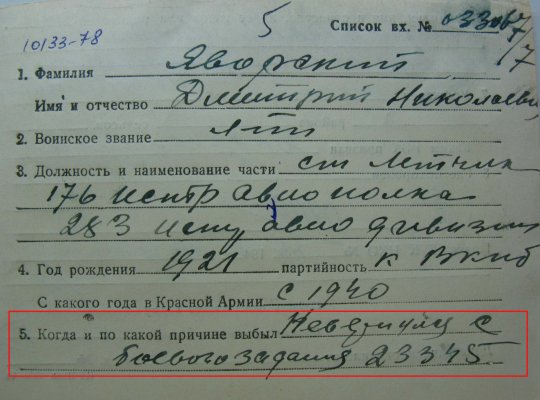 5
10133-78
Список вх. № 03306
7/7
1. Фамилия Яворский
Имя и отчество Дмитрий Николаевич
2. Воинское звание
3. Должность и наименование части ст Летчик
176 истр авиополка
283 истр авио дивизии
4. Год рождения 1921 партийность к ВКПб
С какого года в Красной Армии с 1940
5. Когда и по какой причине выбыл Невернулся с
боевого задания 23345